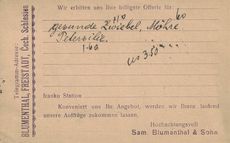 Wir erbitten uns Ihre billigste Offerte für:
gesunde Zwiebel, Möhre
Petersilie
franko Station
Konveniert uns Ihr Angebot, werden wir Ihnen laufend
unsere Aufträge zukommen lassen.
Hochachtungsvoll
Sam. Blumenthal & Sohn
Telegramm-Adresse:
BLUMENTHAL, FREISTADT, Čech. Schlesien